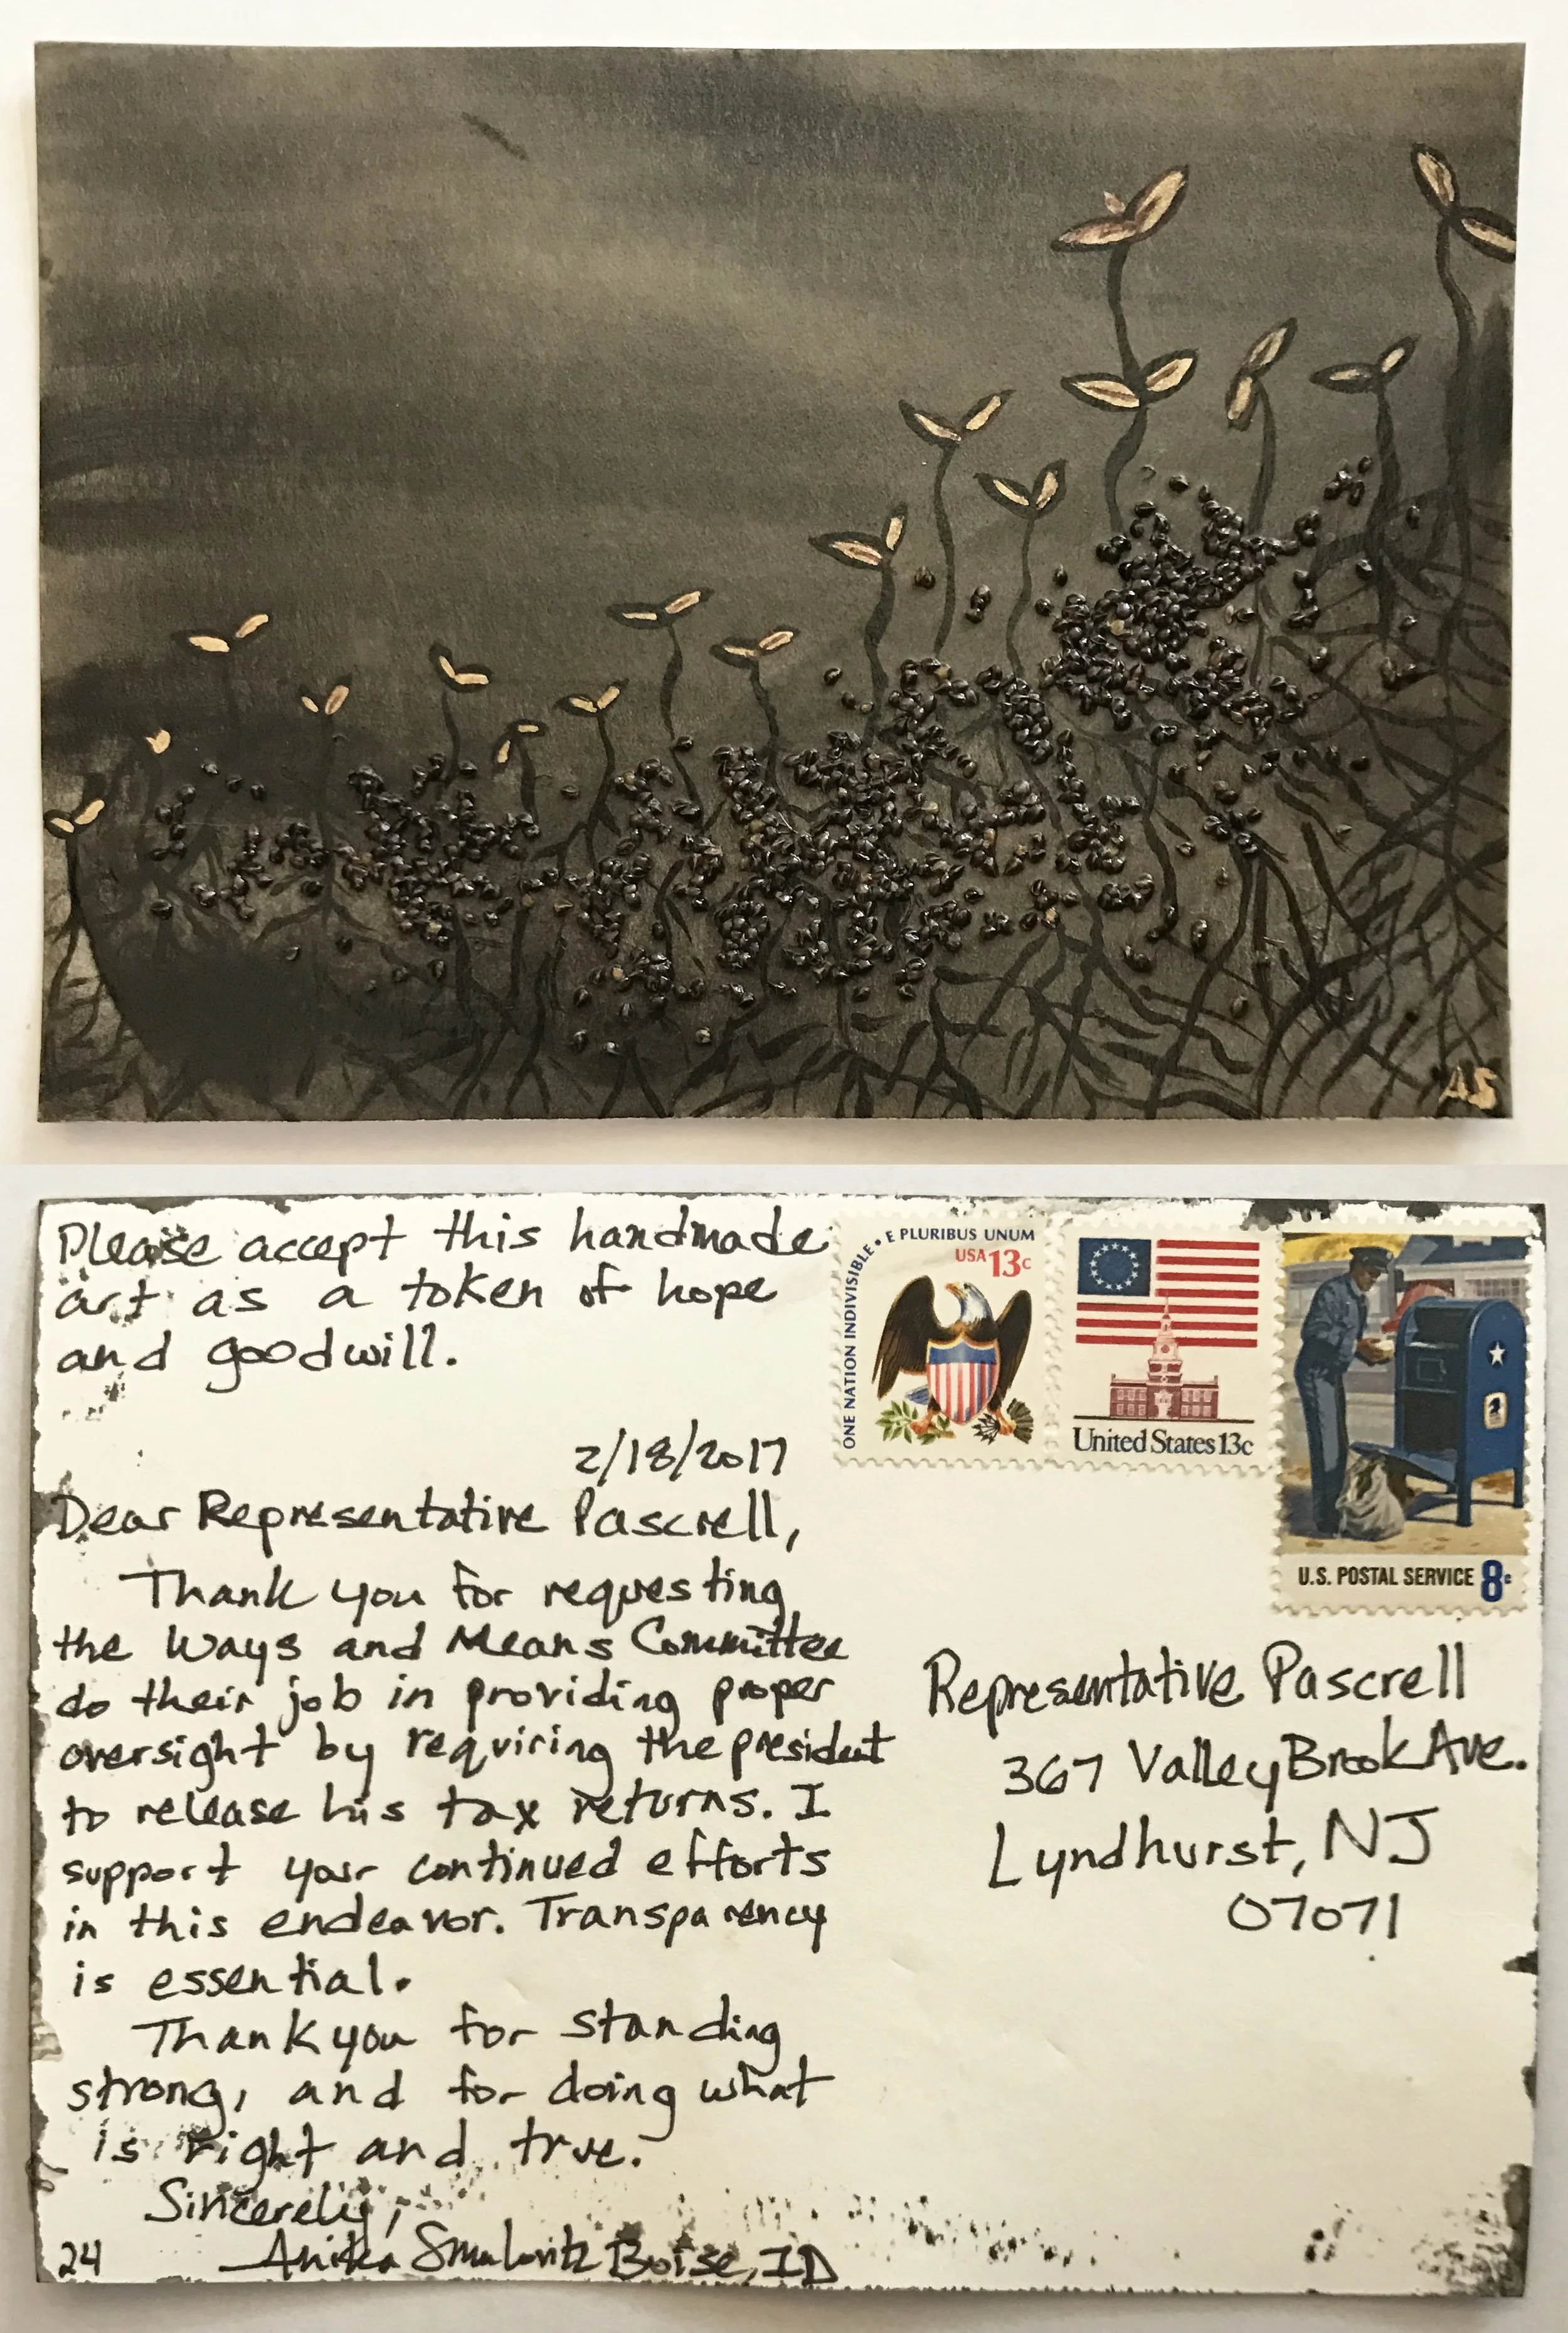 AS
Please accept this handmade
art as a token of hope
and goodwill.
2/18/2017
Dear Representative Pascrell,
Thank you for requesting
the Ways and Means Committee
do their job in providing proper
oversight by requiring the president
to release his tax returns. I
support your continued efforts
in this endeavor. Transparency
is essential.
Thank you for standing
strong, and for doing what
is right and true.
Sincerely,
Anika Smulovitz Boise, ID
24
ONE NATION INDIVISIBLE • E PLURIBUS UNUM
USA 13c
United States 13c
U.S. POSTAL SERVICE 8c
Representative Pascrell
367 Valley Brook Ave.
Lyndhurst, NJ
07071